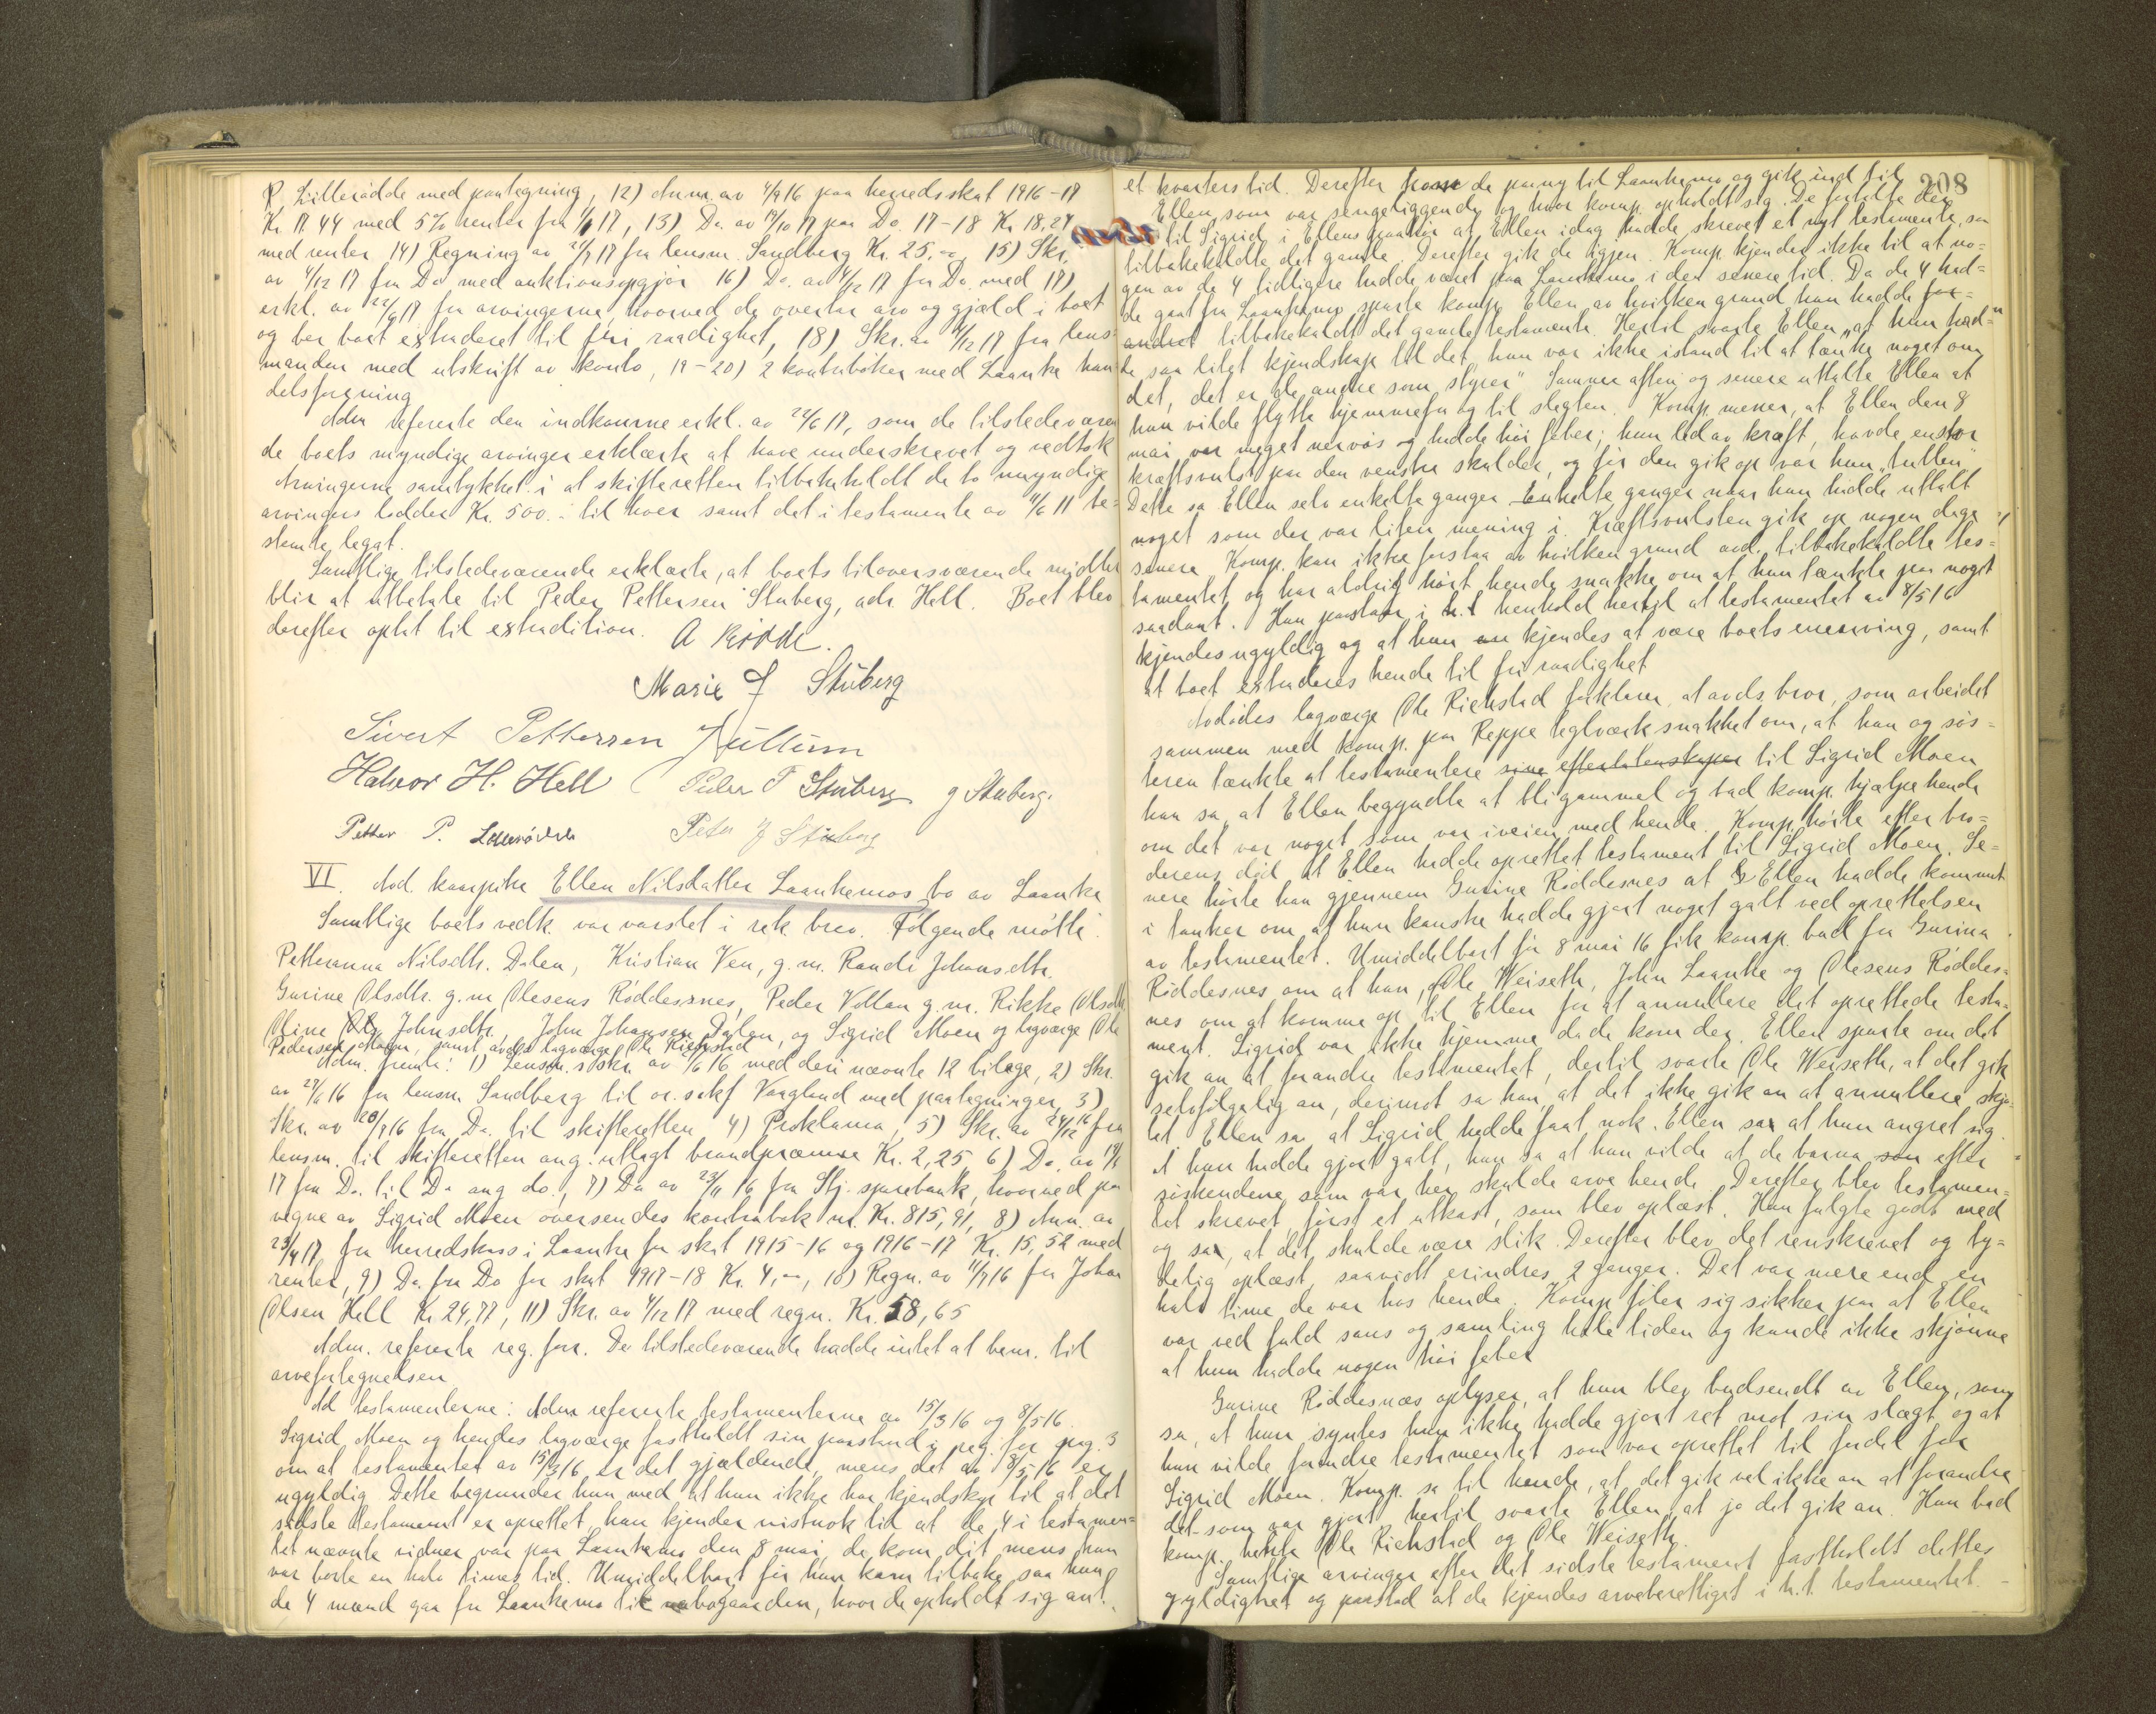 P. Lillerødde med paategning, 12) Anm. av 4/9 16 paa herredsskat 1916-17
Kr. 17.44 med 5% renter fra 1/1 17, 13) Do. av 17/10 17 paa Do. 17-18 Kr. 18,27
med renter 14) Regning av 21/7 17 fra lensm. Sandberg Kr. 25.-, 15) Skr.
av 4/12 17 fra Do med auktionsopgjør 16) Do. av 4/12 17 fra Do. med 17)
erkl. av 22/6 17 fra arvingerne, hvorved de overtar arv og gjæld i boet
og ber boet extraderet til fri raadighet, 18) Skr. av 4/12 17 fra lens-
manden med utskrift av konto, 19-20) 2 kontrabøker med Laanke han-
delsforening
Adm refererte den indkomne erkl. av 22/6 17, som de tilstedeværen
de boets myndige arvinger erklærte at have underskrevet og vedtok
Arvingerne samtykket i at skifteretten tilbakeholdt de to umyndige
arvingers lodder Kr. 500.- til hver samt det i testamente av 11/6 11 be-
stemte legat.
Samtlige tilstedeværende erklærte, at boets tiloversværende midler
blir at utbetale til Peder Pettersen Stuberg, adr. Hell. Boet blev
derefter optat til extradition. A Rødde.
Marie J Stuberg
Sivert Pettersen Kullum
Halvor H. Hell Peder P Stuberg g Stuberg.
Petter P. Lillerødde Peter J Stuberg
VI. Avd. kaarpike Ellen Nilsdatter Laankemos bo av Laanke
Samtlige boets vedk. var varslet i rek. brev. Følgende møtte:
Petteranna Nilsdtr. Dalen, Kristian Ven, g. m. Randi Johansdtr.
Gurine Olsdtr. g. m. Olesens Røddesnes, Peder Vollan g. m. Rikke Olsdtr
Oline Johnsdtr., John Johansen Dalen, og Sigrid Moen og lagværge Ole
Pedersen Moen, samt avdøs lagværge Ole Richstad
Adm. fremla: 1) Lensm.s skr. av 7/6 16 med deri nævnte 12 bilage, 2) Skr.
av 27/6 16 fra lensm Sandberg til or. sakf Vaagland med paategninger, 3)
Skr. av 20/9 16 fra Do. til skifteretten 4) Proklama, 5) Skr. av 24/12 16 fra
lensm. til skifteretten ang. utlagt brandpræmie Kr. 2,25 6) Do. av 19/1
17 fra Do. til Do ang do., 7) Do av 23/11 16 fra Stj. sparebank, hvorved paa
vegne av Sigrid Moen oversendes kontrabok m. Kr. 815,91, 8) Anm. av
23/4 17 fra herredskass i Laanke for skat 1915-16 og 1916-17 Kr. 15,52 med
renter, 9) Do. fra Do for skat 1917-18 Kr. 4,-, 10) Regn. av 11/7 16 fra Johan
Olsen Hell Kr. 24,77, 11) Skr. av 4/12 17 med regn. Kr. 58,65
Adm. refererte reg. forr. De tilstedeværende hadde intet at bem. til
arvefortegnelsen
Ad testamenterne: Adm refererte testamenterne av 15/3 16 og 8/5 16.
Sigrid Moen og hendes lagværge fastholdt sin paastand i reg. for pag. 3
om at testamentet av 15/3 16 er det gjældende, mens det av 8/5 16 er
ugyldig. Dette begrunder hun med at hun ikke har kjendskap til at det
sidste testament er oprettet, hun kjender nistnok tid at de 4 i testamen-
tet nævnte vidner var paa Laankemo den 8 mai, de kom dit mens hun
var borte en halv times tid. Umiddelbart før hun kom tilbake saa hun
de 4 mænd gaa fra Laankemo til nabogaarden, hvor de opholdt sig omt.
208
et kvarters tid. Derefter kom de paany til Laankemo og gik ind til
Ellen, som var sengeliggende og hvor komp. opholdt sig. De fortalte der
til Sigrid i Ellens paahør at Ellen idag hadde skrevet et nyt testamente, som
tilbakekaldte det gamle. Derefter gik de igjen. Komp kjender ikke til at no-
gen av de 4 tidligere hadde været paa Laankemo i den senere tid. Da de 4 had-
de gaat fra Laankemo spurte komp. Ellen av hvilken grund hun hadde for-
andret tilbakekaldt det gamle testamente. Hertil svarte Ellen „at hun had-
de saa litet kjendskap til det, hun var ikke istand til at tænke noget om
det, det er de andre som styrer". Samme aften og senere uttalte Ellen at
hun vilde flytte hjemmefra og til slegten. Komp. mener, at Ellen den 8
mai var meget nervøs og hadde høi feber; hun led av kræft, havde en stor
kræftsvulst paa den venstre skulder, og før den gik op var hun „tullen"
Dette sa Ellen selv enkelte ganger Enkelte ganger naar hun hadde uttalt
noget som der var liten mening i. Kræftsvulsten gik op nogen dage
senere Komp. kan ikke forstaa av hvilken grund avd. tilbakekaldte tes-
tamentet og har aldrig hørt hende snakke om at hun tænkte paa noget
saadant. Hun paastaar i h.t henhold hertil at testamentet av 8/5 16
kjendes ugyldig og at hun kjendes at være boets enearving, samt
at boet extraderes hende til fri raadighet
Avdødes lagværge Ole Richstad forklarer, at avds bror, som arbeidet
sammen med komp. paa Reppe teglværk snakket om, at han og søs-
teren tænkte at testamentere sine efterlatenskaper til Sigrid Moen
han sa, at Ellen begyndte at bli gammel og bad komp. hjælpe hende
om det var noget som var iveien med hende. Komp. hørte efter bro-
derens død at Ellen hadde oprettet testament til Sigrid Moen. Se-
nere hørte han gjennem Gurine Røddesnes at Ellen hadde kommet
i tanker om, at hun kanske hadde gjort noget galt ved oprettelsen
av testamentet. Umiddelbart før 8 mai 16 fik komp. bud fra Gurina
Røddesnes om at han, Ole Weiseth, John Laanke og Olesens Røddes-
nes om at komme op til Ellen for at annullere det oprettede testa-
ment. Sigrid var ikke hjemme da de kom der. Ellen spurte om det
gik an at forandre testamentet, dertil svarte Ole Weiseth, at det gik
selvfølgelig an, derimot sa han, at det ikke gik an at annullere skjø-
tet. Ellen sa, at Sigrid hadde faat nok. Ellen sa at hun angret sig.
At hun hadde gjort galt, hun sa at hun vilde at de barna efter
søskendene, som var her skulde arve hende. Derefter blev testamen-
tet skrevet, først et utkast, som blev oplæst. Hun fulgte godt med
og sa, at det skulde være slik. Derefter blev det renskrevet og ty-
delig oplæst, saavidt erindres 2 ganger. Det var mere end en
halv time de var hos hende. Komp. føler sig sikker paa at Ellen
var ved fuld sans og samling hele tiden og kunde ikke skjønne
at hun hadde nogen høi feber
Gurine Røddesnæs oplyser, at hun blev budsendt av Ellen, som
sa, at hun syntes hun ikke hadde gjort ret mot sin slægt og at
hun vilde forandre testamentet som var oprettet til fordel for
Sigrid Moen. Komp. sa til hende, at det gik vel ikke an at forandre
det som var gjort hertil svarte Ellen, at jo det gik an. Hun bad
komp. hente Ole Richstad og Ole Weiseth.
Samtlige arvinger efter det sidste testament fastholdt dettes
gyldighet og paastod at de kjendes arveberettiget i h.t. testamentet.